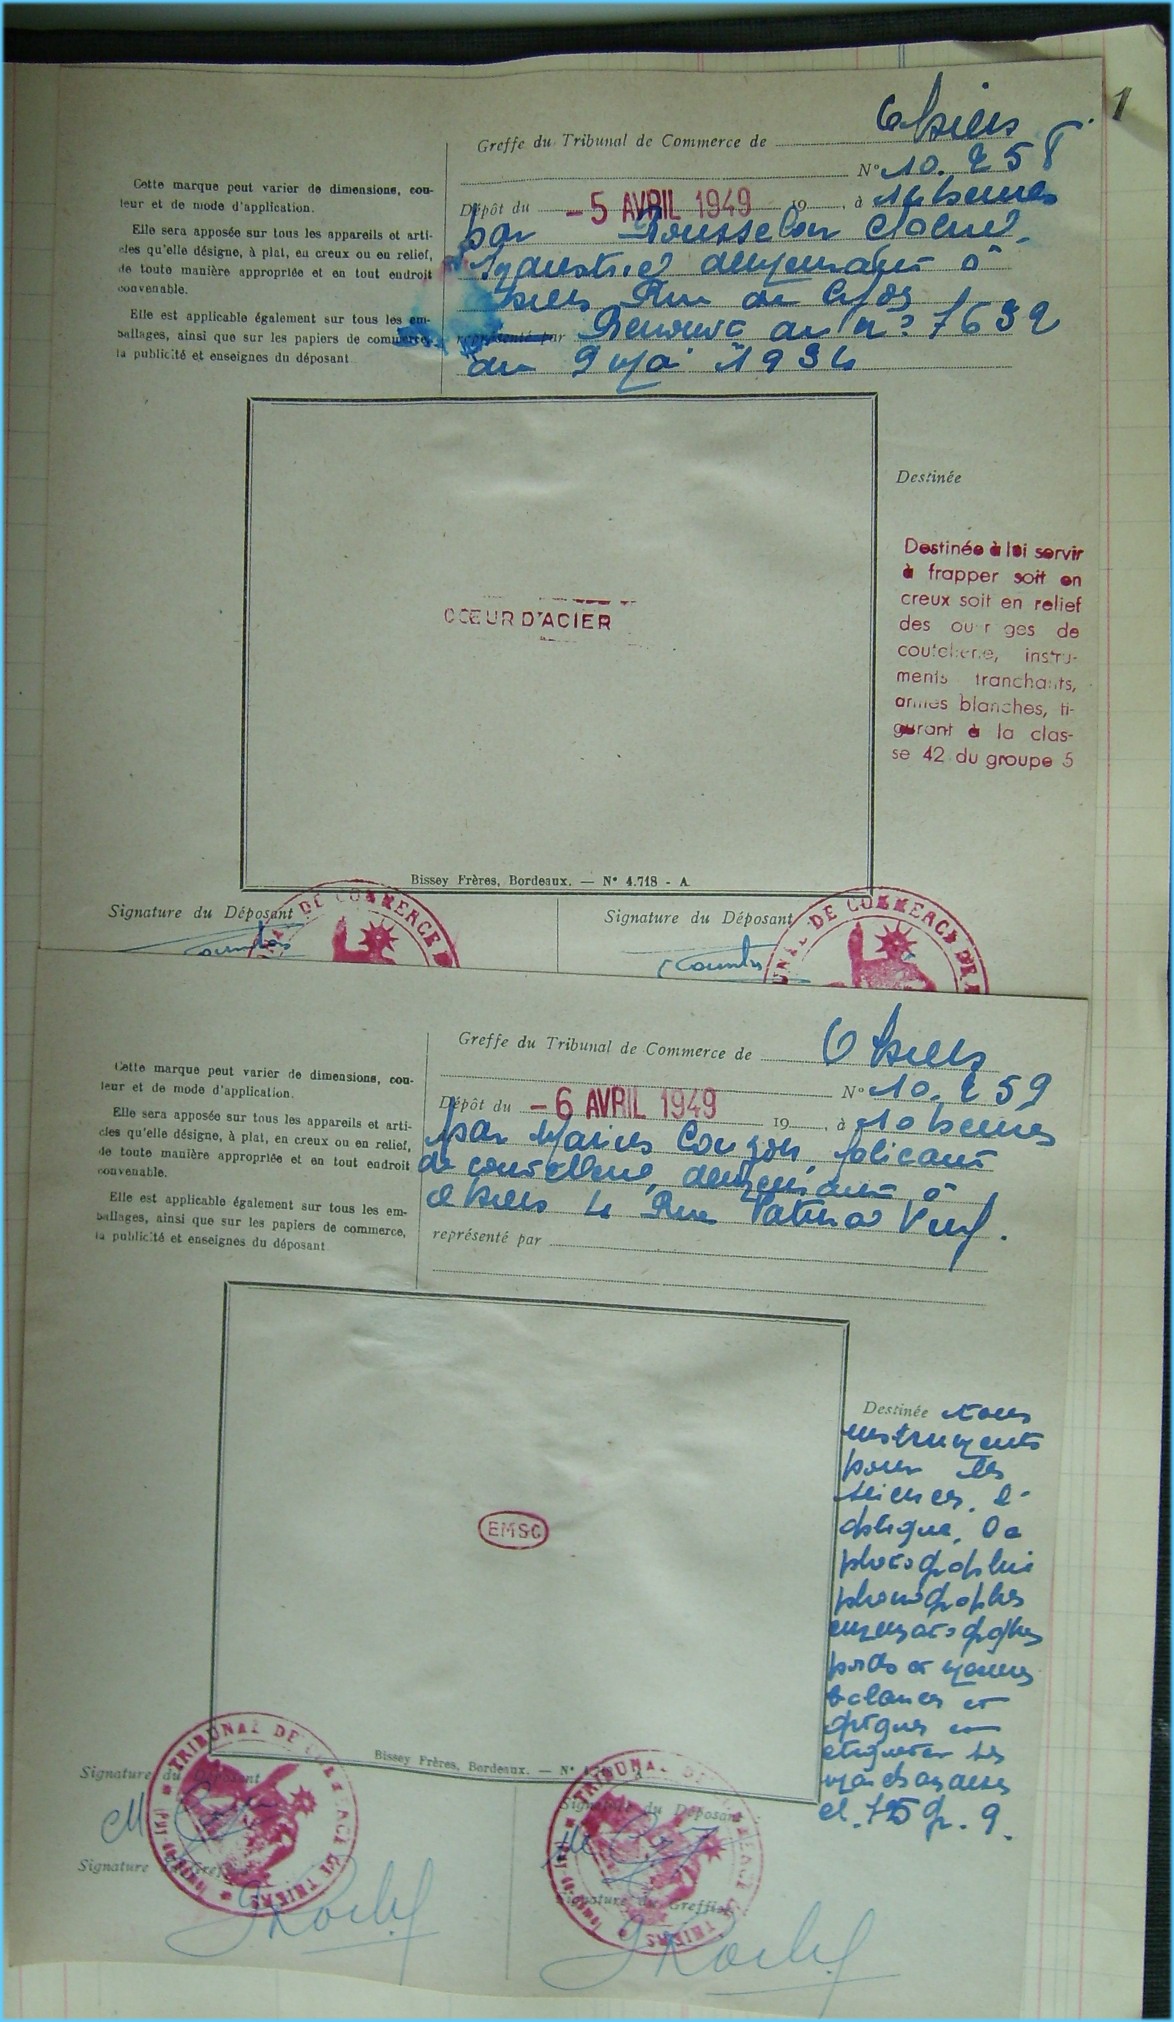 1
Greffe du Tribunal de Commerce de Thiers
N° 10.258
Dépôt du - 5 AVRIL 1949 19 , à 14 heures
par Rousselon
Industriel demeurant à
Thiers Rue de
représenté par Renouv au n° 7632
du 9 Mai 1934
Cette marque peut varier de dimensions, cou-
leur et de mode d'application.
Elle sera apposée sur tous les appareils et arti-
cles qu'elle désigne, à plat, en creux ou en relief,
de toute manière appropriée et en tout endroit
convenable.
Elle est applicable également sur tous les em-
ballages, ainsi que sur les papiers de commerce,
la publicité et enseignes du déposant
CŒUR D'ACIER
Destinée
Destinée à lui servir
à frapper soit en
creux soit en relief
des ouvrages de
coutellerie, instru-
ments tranchants,
armes blanches, fi-
gurant à la clas-
se 42 du groupe 5
Bissey Frères, Bordeaux. — N° 4.718 - A
Signature du Déposant
Signature du Déposant
DE COMMERCE D
NAL DE COMMERCE DE
Greffe du Tribunal de Commerce de Thiers
N° 10.259
Dépôt du - 6 AVRIL 1949 19 , à 10 heures
par Marius Couzon, fabricant
de coutellerie, demeurant à
Thiers 4 Rue
représenté par
Cette marque peut varier de dimensions, cou-
leur et de mode d'application.
Elle sera apposée sur tous les appareils et arti-
cles qu'elle désigne, à plat, en creux ou en relief,
de toute manière appropriée et en tout endroit
convenable.
Elle est applicable également sur tous les em-
ballages, ainsi que sur les papiers de commerce,
la publicité et enseignes du déposant
EMSC
Destinée tous
instruments
pour les
sciences, l'
optique, la
photographie
phonographes
cinématographes
poids et mesures
balances et
marchandises
cl. 75 gr. 9.
Bissey Frères, Bordeaux. — N°
Signature du Déposant
Signature du Déposant
Signature du Greffier
Signature du Greffier
TRIBUNAL DE COMMERCE DE THIERS
TRIBUNAL DE COMMERCE DE THIERS